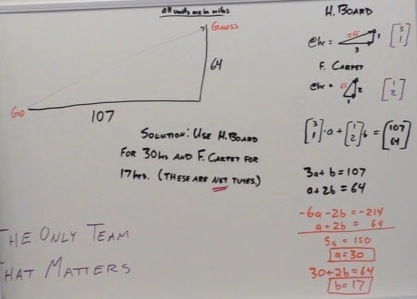 all units are in miles
GAUSS
64
GO
107
SOLUTION: USE H. BOARD
FOR 30HRS AND F. CARPET FOR
17HRS. (THESE ARE NET TIMES.)
THE ONLY TEAM
THAT MATTERS
H. BOARD
@hr 1 3 [3 1]
F. CARPET
@hr √5 2 1 [1 2]
[3 1]·a + [1 2]b = [107 64]
3a + b = 107
a + 2b = 64
-6a - 2b = -214
a + 2b = 64
5a = 150
a = 30
30 + 2b = 64
b = 17